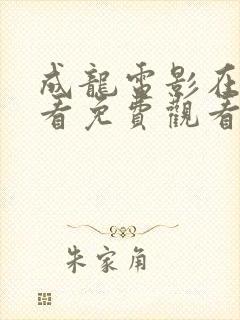 成龍雷影在
看免費觀看
朱家角